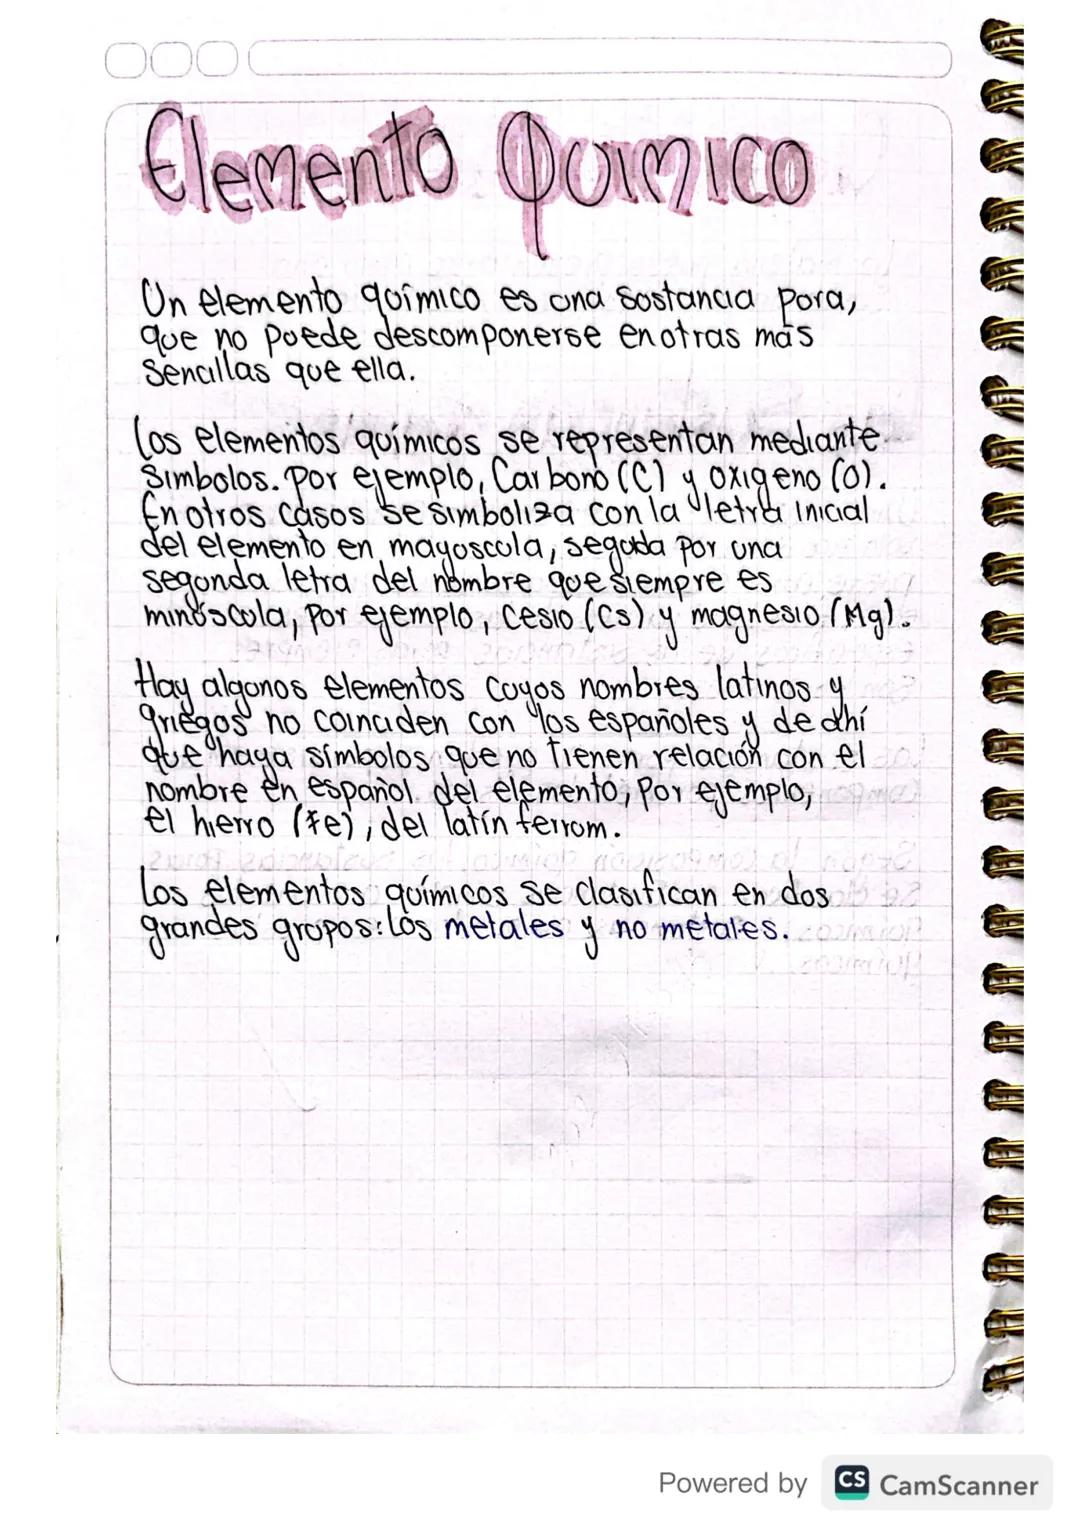 Elemento Químico
Un elemento químico es una sustancia pura,
que no puede descomponerse en otras más
sencillas que ella.
Los elementos químicos se representan mediante
símbolos. Por ejemplo, Carbono (C) y oxigeno (O).
En otros casos se simboliza con la letra inicial
del elemento en mayuscula, seguda por una
segunda letra del nombre que siempre es
minúscula, por ejemplo, cesio (Cs) y magnesio (Mg).
Hay algunos elementos cuyos nombres latinos y
griegos no coinciden con los españoles y de ahí
que haya símbolos que no tienen relación con el
nombre en español del elemento, por ejemplo,
el hierro (Fe), del latín ferrum.
Los elementos químicos se clasifican en dos
grandes grupos: los metales y no metales.
Powered by CS CamScanner